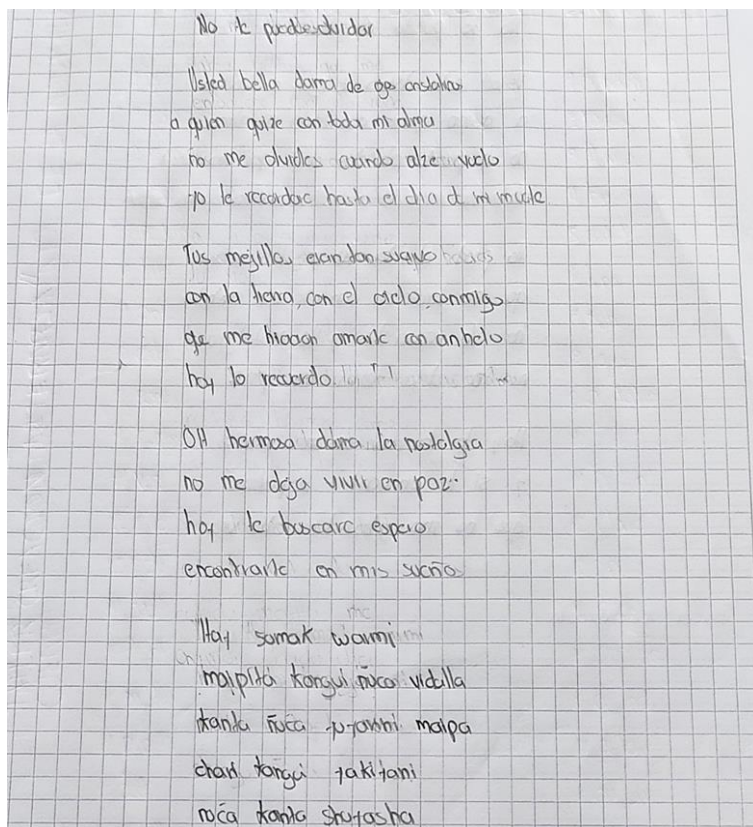 No te puedes olvidar
Usted bella dama de ojos
a quien quize con toda mi alma
no me olvides cuando alze vuelo
yo te recordare hasta el dia d mi muerte
Tus mejillas eran tan suave
con la tierra, con el cielo, conmigo
qe me hicieron amarte con anhelo
hoy lo recuerdo
OH hermosa dama la nostalgia
no me deja vivir en paz..
hoy te buscare espero
encontrarte en mis sueño
Hay sumak warmi
maipita kangui ñuca vidalla
kanta ñuca yuyawni maipa
kangui
ñuca kanta shuyasha